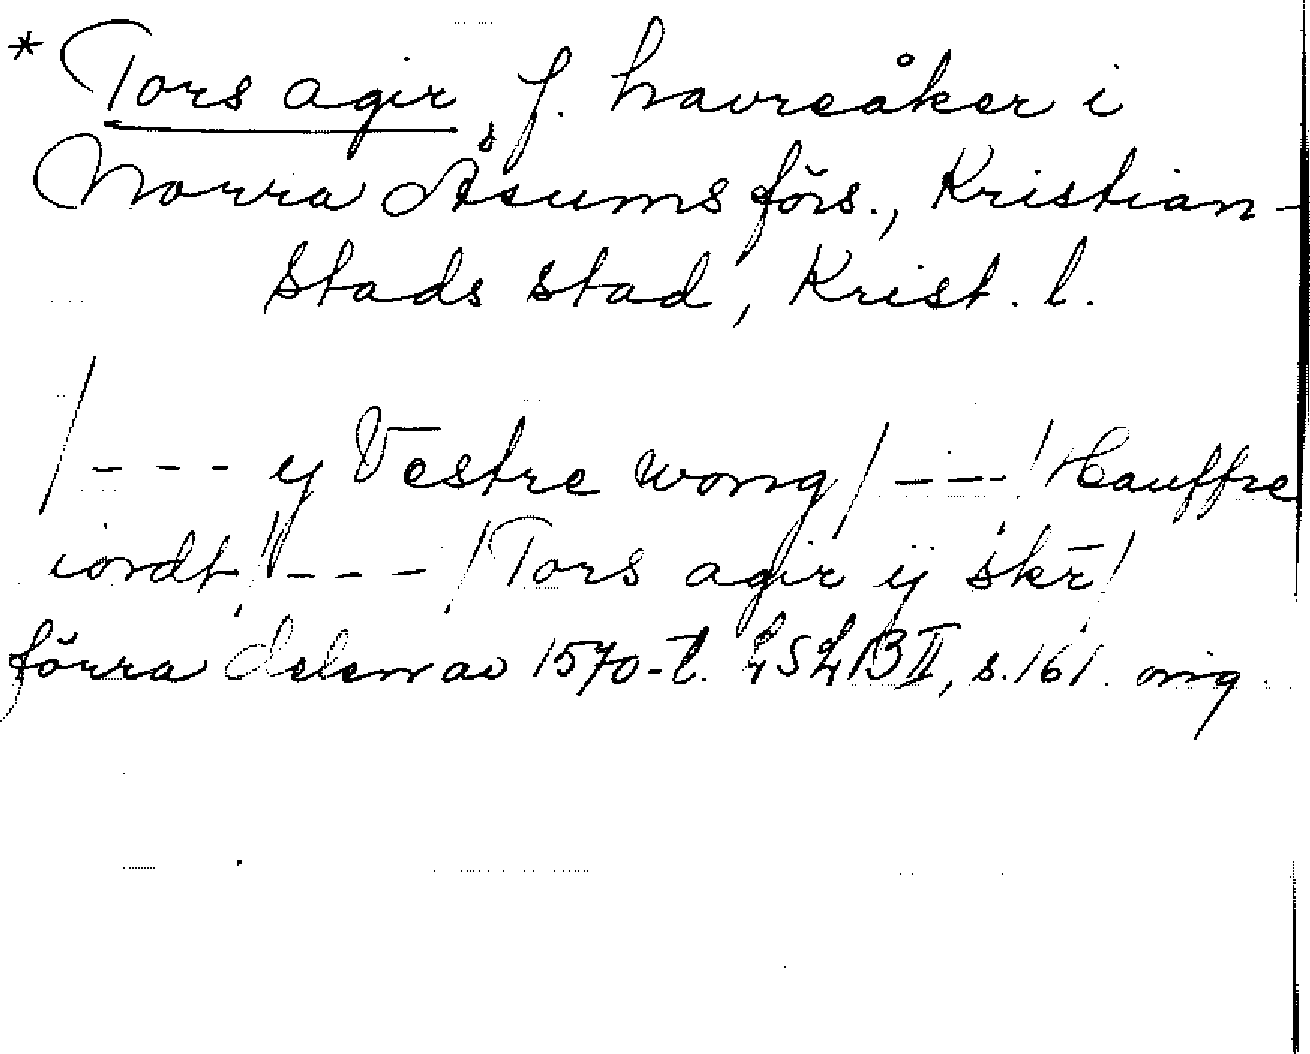 * Tors agir, f. havreåker i
Norra Åsums förs., Kristian-
stads stad, Krist. l.
/--- y Vestre wong/ ---/Hauffre
iordt/ --- /Tors agir ij skr̄/
förra delen av 1570-t. LSLB II, s. 161. orig